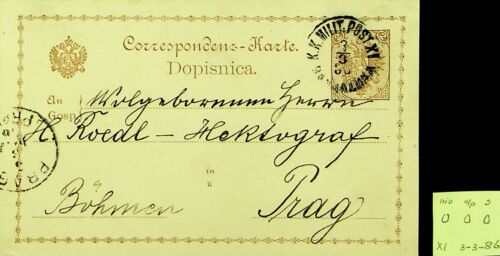 Correspondenz-Karte.
Dopisnica.
K.K. MILIT. POST XI
3
3
86
An
Gosp.
Wolgeborenen Herrn
H. Roedl - Hektograf
in
u
Böhmen
Prag
PRAG
0 0 0
XI 3-3-86